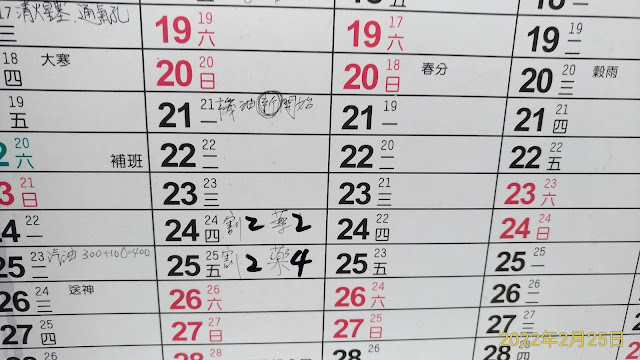 17 清火星塞.通氣孔
三
18 四 大寒
19 五
2 20 六 補班
3 21 日
24 22 一
25 23 二 汽油 300+100=400
26 24 三 送神
27 25 四
18
19 19 六
20 20 日
21 21 一 油 新 開始
22 22 二
23 23 三
24 24 四 割 2 藥 2
25 25 五 割 2 藥 4
26 26 六
27 27 日
28 28
18 五
19 17 六
20 18 日 春分
21 19 一
22 20 二
23 21 三
24 22 四
25 23 五
26 24 六
27 25 日
28
18 一
19 19 二
20 20 三 穀雨
21 21 四
22 22 五
23 23 六
24 24 日
25 25 一
26 26 二
27 27 三
28 28
2022年2月25日